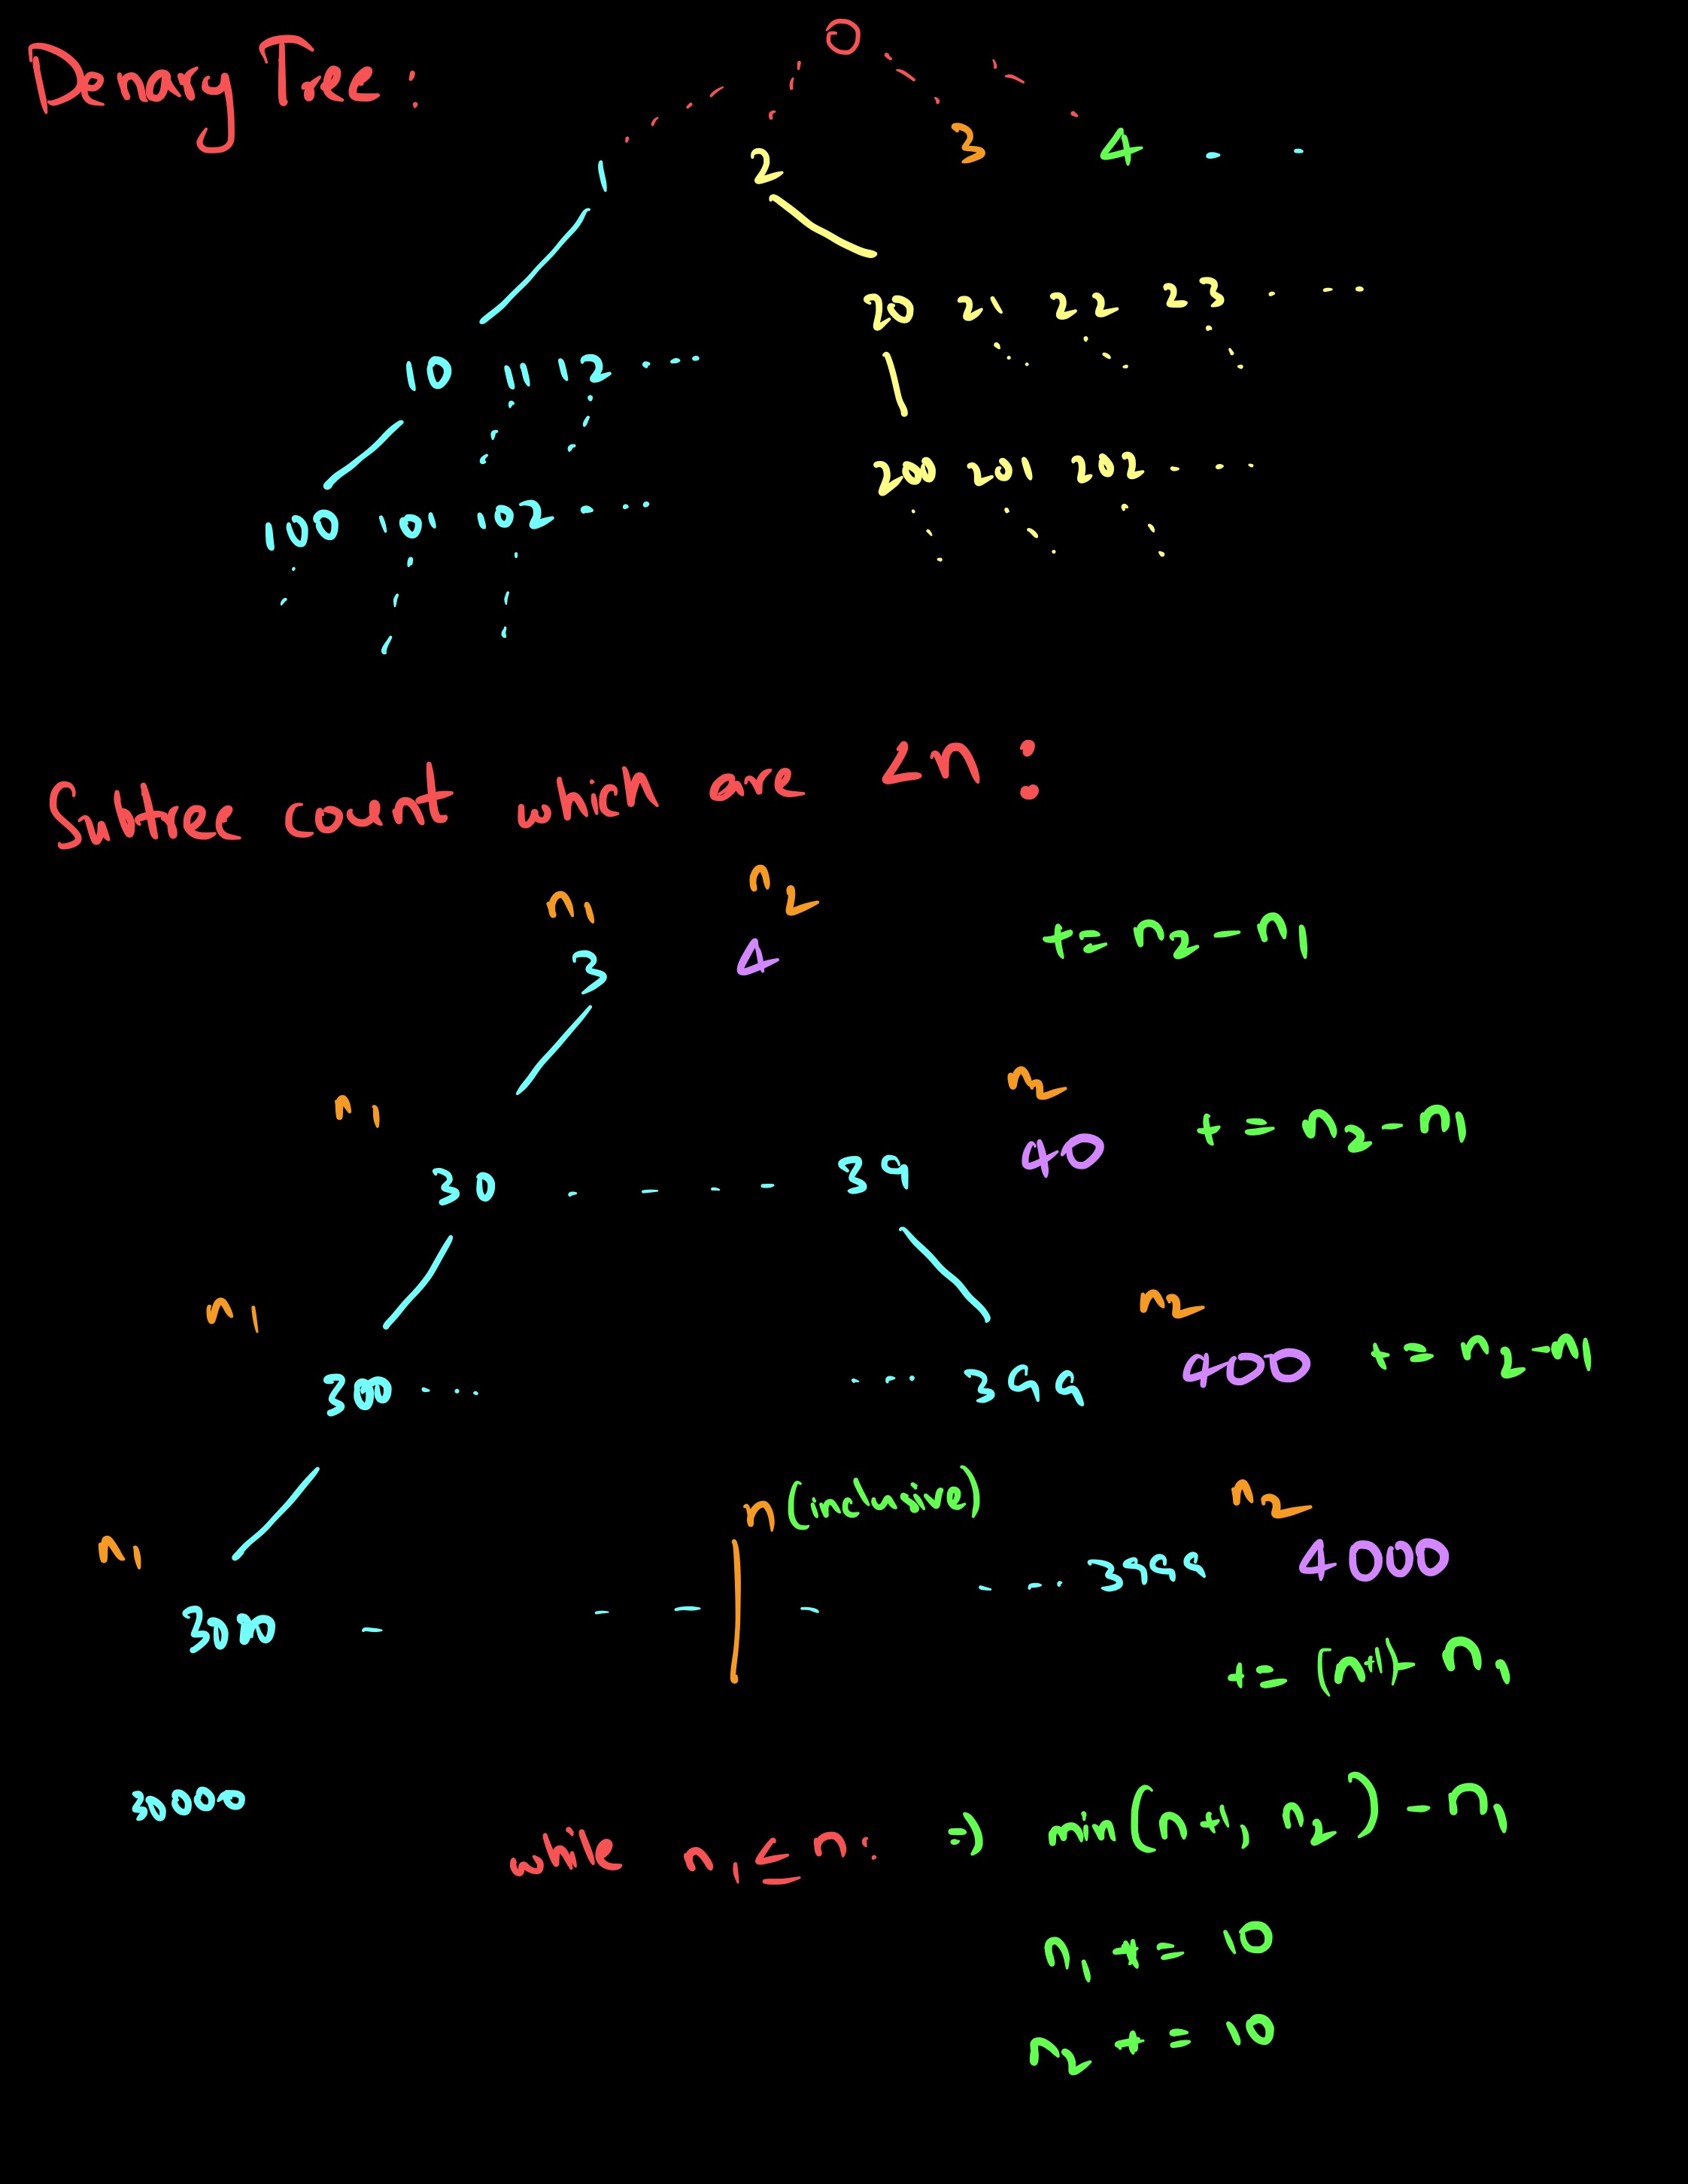 Denary Tree :
O
1 2 3 4 . -
20 21 22 23 . - -
10 11 12 - - -
200 201 202 - - -
100 101 102 - - -
Subtree count which are < n :
n1 n2
3 4 += n2 - n1
n1 n2
30 . - - - - 39 40 += n2 - n1
n1 n2
300 ... ... 399 400 += n2 - n1
n (inclusive) n2
n1
3000 - - - - - - . 3999 4000
+= (n+1) - n1
30000
while n1 ≤ n : => min(n+1, n2) - n1
n1 *= 10
n2 *= 10